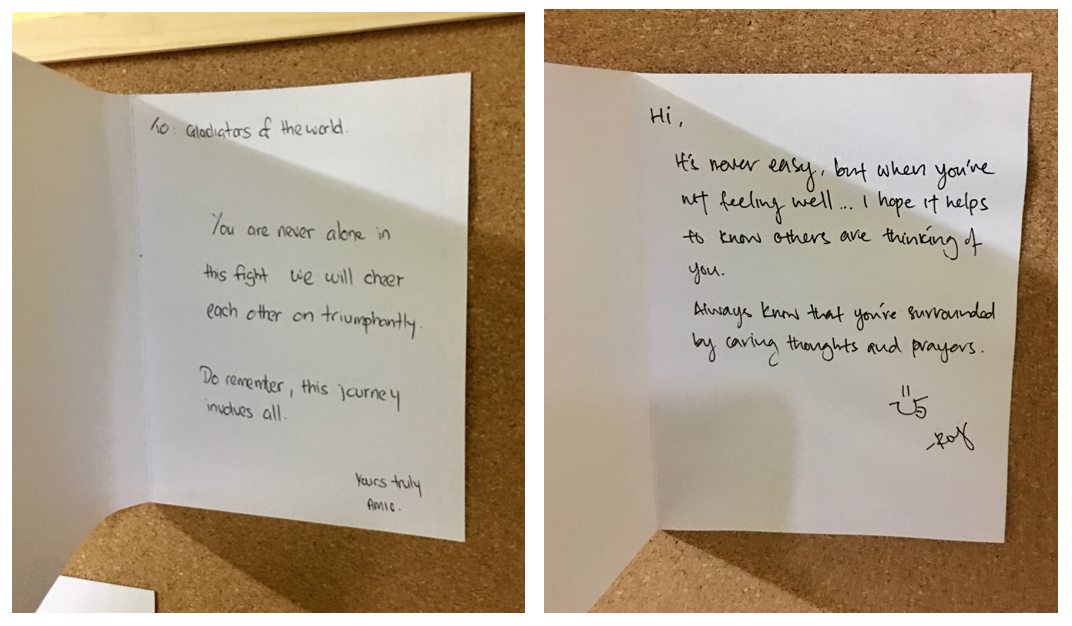 To: Gladiators of the world.
You are never alone in
this fight we will cheer
each other on triumphantly.
Do remember, this journey
involves all.
Yours truly
Hi,
It's never easy, but when you're
not feeling well... I hope it helps
to know others are thinking of
you.
Always know that you're surrounded
by caring thoughts and prayers.